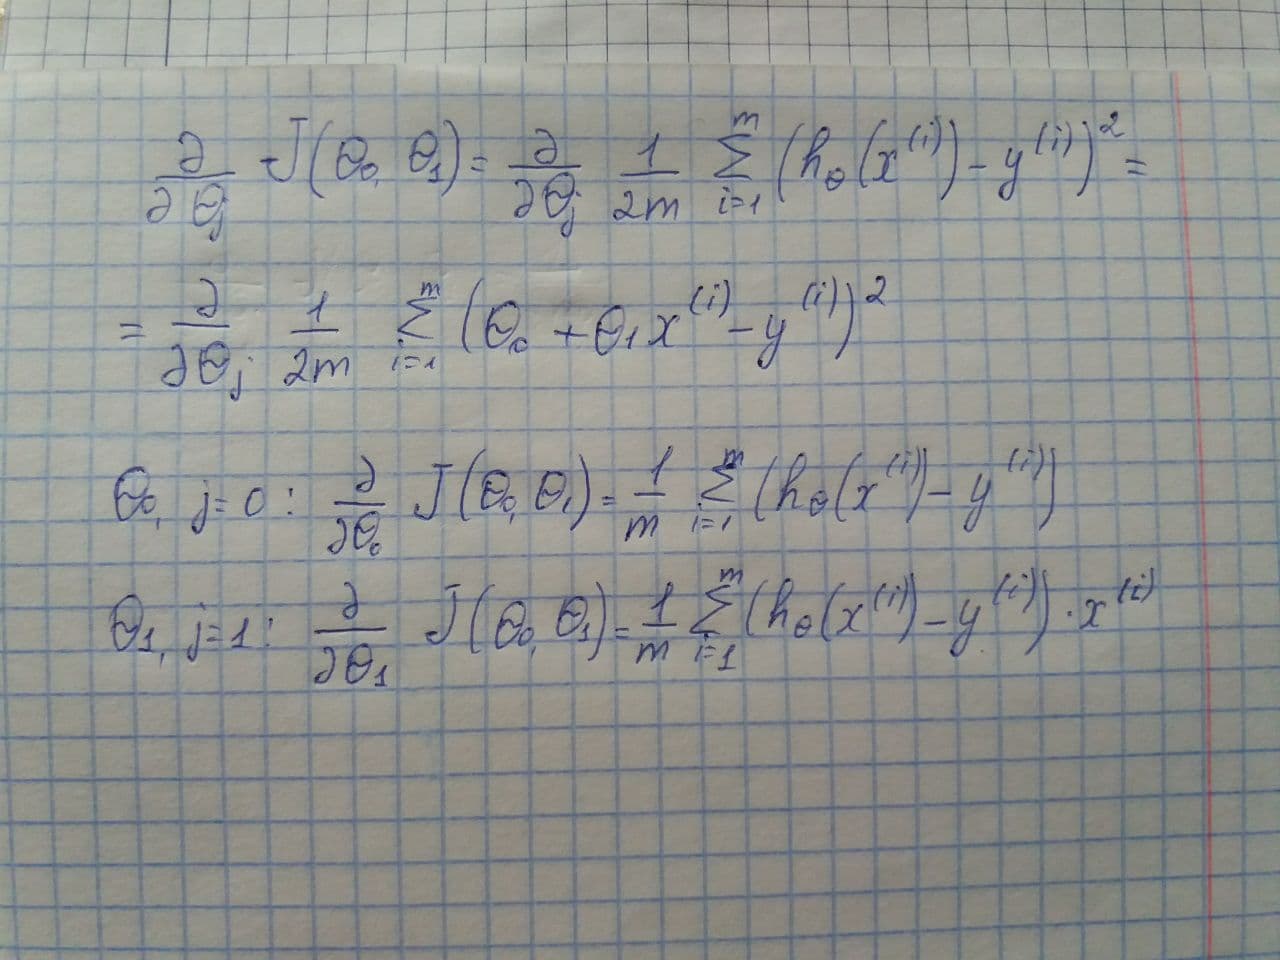 ∂/∂θⱼ J(θ₀, θ₁) = ∂/∂θⱼ 1/2m Σᵢ₌₁ᵐ (h_θ(x⁽ⁱ⁾) − y⁽ⁱ⁾)² =
= ∂/∂θⱼ 1/2m Σᵢ₌₁ᵐ (θ₀ + θ₁x⁽ⁱ⁾ − y⁽ⁱ⁾)²
θ₀, j=0 : ∂/∂θ₀ J(θ₀, θ₁) = 1/m Σᵢ₌₁ᵐ (h_θ(x⁽ⁱ⁾) − y⁽ⁱ⁾)
θ₁, j=1 : ∂/∂θ₁ J(θ₀, θ₁) = 1/m Σᵢ₌₁ᵐ (h_θ(x⁽ⁱ⁾) − y⁽ⁱ⁾) · x⁽ⁱ⁾